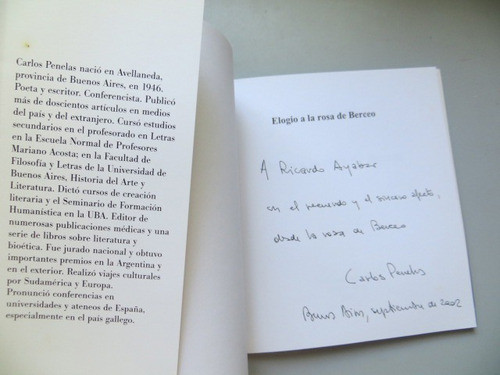 Carlos Penelas nació en Avellaneda,
provincia de Buenos Aires, en 1946.
Poeta y escritor. Conferencista. Publicó
más de doscientos artículos en medios
del país y del extranjero. Cursó estudios
secundarios en el profesorado en Letras
en la Escuela Normal de Profesores
Mariano Acosta; en la Facultad de
Filosofía y Letras de la Universidad de
Buenos Aires, Historia del Arte y
Literatura. Dictó cursos de creación
literaria y el Seminario de Formación
Humanística en la UBA. Editor de
numerosas publicaciones médicas y una
serie de libros sobre literatura y
bioética. Fue jurado nacional y obtuvo
importantes premios en la Argentina y
en el exterior. Realizó viajes culturales
por Sudamérica y Europa.
Pronunció conferencias en
universidades y ateneos de España,
especialmente en el país gallego.
Elogio a la rosa de Berceo
A Ricardo
en el recuerdo y el sincero afecto,
desde la rosa de Berceo
Carlos Penelas
Buenos Aires, septiembre de 2002